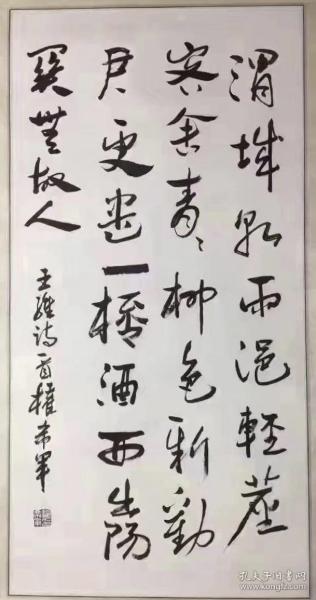 渭城朝雨浥輕塵
客舍青々柳色新勸
君更盡一桮酒西出陽
關無故人
王維詩一首權希軍
孔夫子旧书网